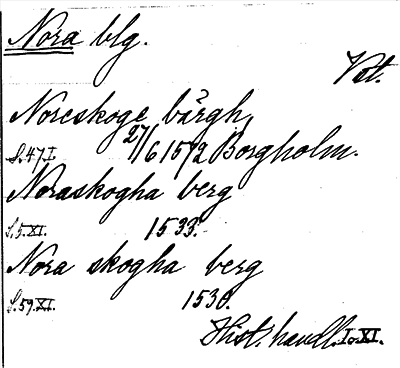 Nora blg.
Vat.
Noreskoge bärgh
S. 47 I. 27/6 1572 Borgholm.
Noraskogha berg
S. 5. XI. 1533.
Nora skogha berg
S. 59. XI. 1530.
Hist. handl. I. XI.